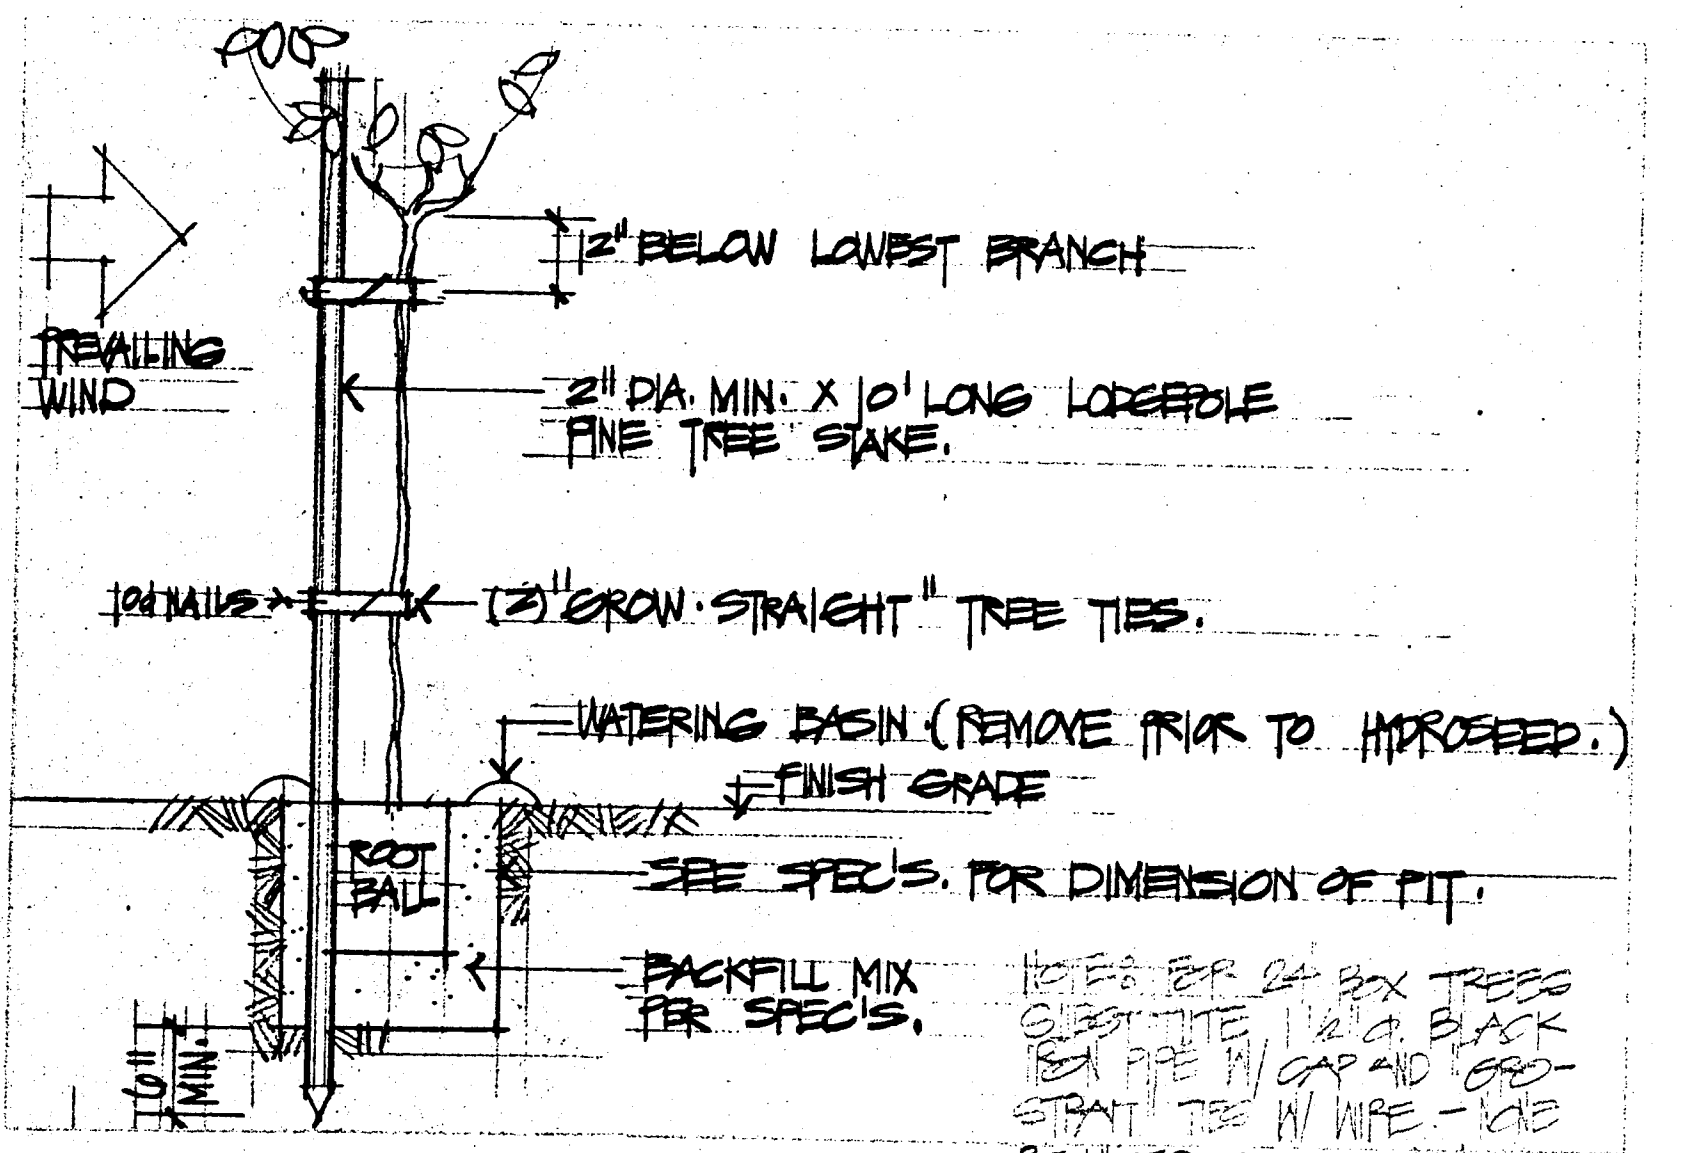 12" BELOW LOWEST BRANCH
PREVAILING
WIND
2" DIA. MIN. X 10' LONG LODGEPOLE
PINE TREE STAKE.
10d NAILS
(2) "GROW·STRAIGHT" TREE TIES.
WATERING BASIN. (REMOVE PRIOR TO HYDROSEED.)
FINISH GRADE
ROOT
BALL
SEE SPEC'S. FOR DIMENSION OF PIT.
BACKFILL MIX
PER SPEC'S.
6"
MIN.
NOTE: FOR 24" BOX TREES
BLACK
IRON PIPE W/ CAP AND "GRO-
STRAIT TIES W/ WIRE. -